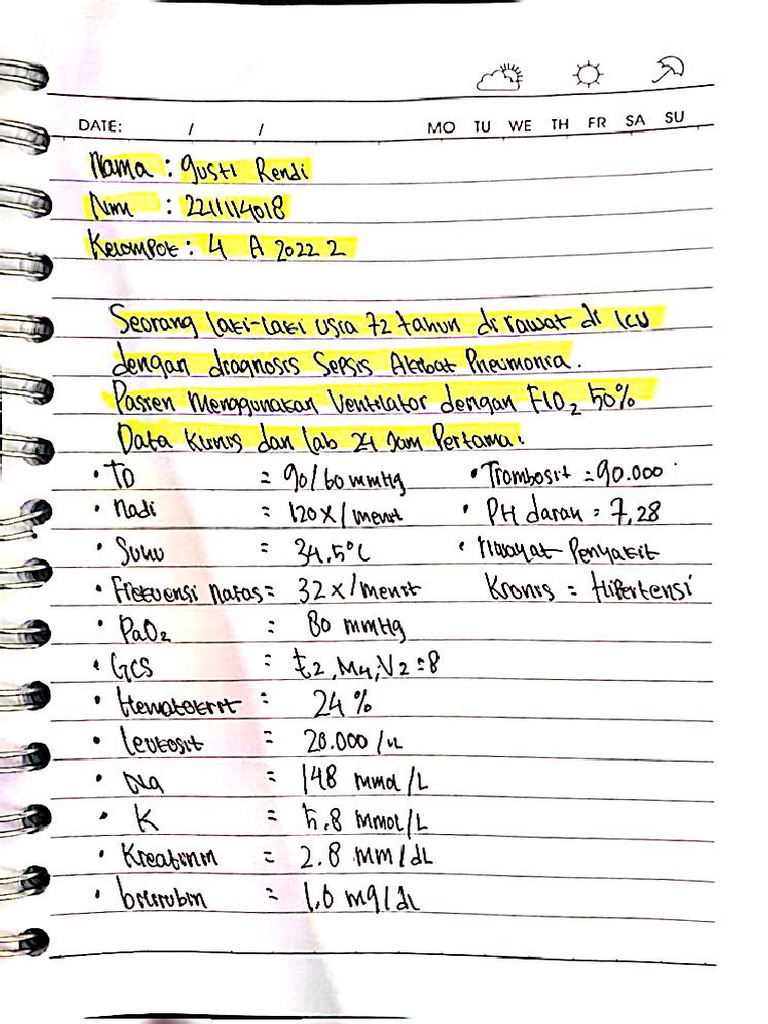 DATE: / / MO TU WE TH FR SA SU
Nama : Gusti Rendi
Nim : 2211114018
Kelompok : 4 A 2022 2
Seorang laki-laki usia 72 tahun di rawat di ICU
dengan diagnosis Sepsis Akibat Pneumonia.
Pasien Menggunakan Ventilator dengan FIO₂ 50%
Data Klinis dan lab 24 Jam Pertama.
• TD = 90/60 mmHg • Trombosit = 90.000
• Nadi = 120 x/menit • PH darah = 7,28
• Suhu = 34,5°C • Riwayat Penyakit
• Frekuensi nafas = 32 x/menit Kronis = Hipertensi
• PaO₂ : 80 mmHg
• GCS = E2, M4, V2 = 8
• Hematokrit = 24%
• leukosit = 20.000 /u
• Na = 148 mmol/L
• K = 5,8 mmol/L
• Kreatinin = 2.8 mm/dL
• bilirubin = 1,0 mg/dl